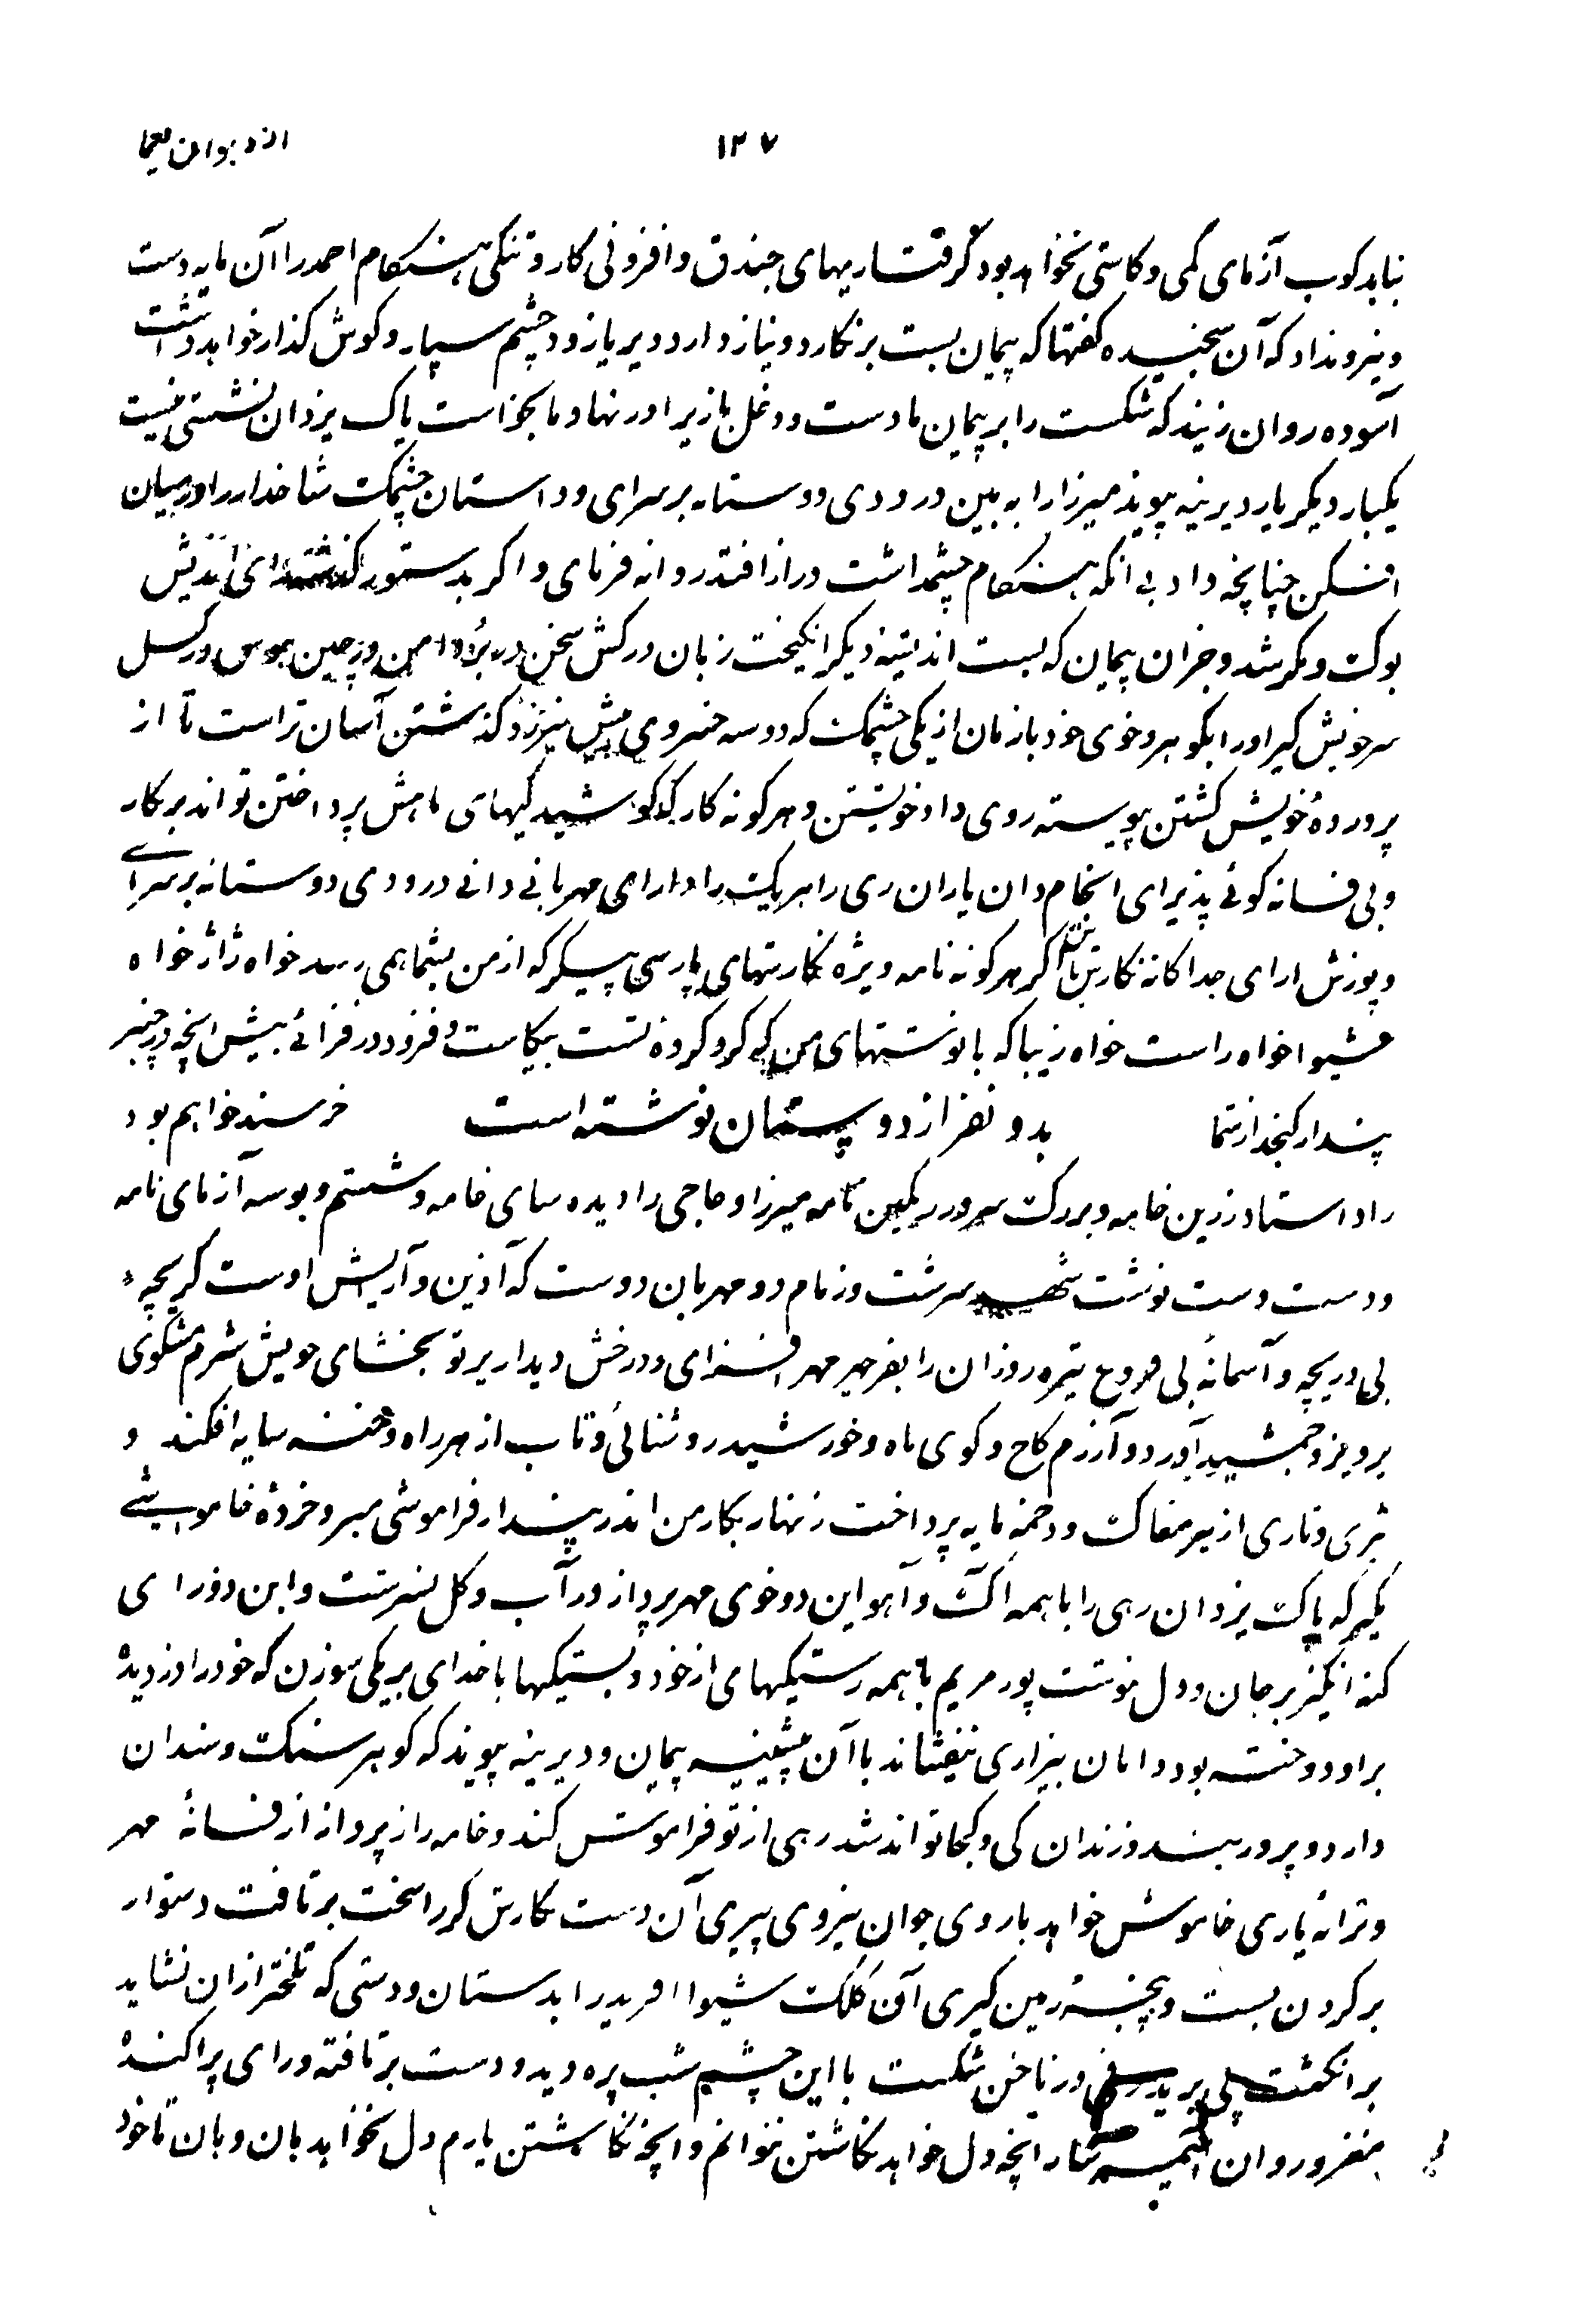 از دیوان یغما
۱۲۷
نباید کوب آزمای کمی و کاستی نخواهد بود گرفتاریهای جندق و افزونی کار و تنکی هنکام احمد را آن مایه دست
و نیرو نداد که آن سنجیده کفتها که پیمان بست برنکارد و نیاز دارد دیر یا زود چشم سپار و کوش کذار خواهد داشت
آسوده روان زیند که شکست را بر پیمان ما دست و دغل بازیرا در نهاد ما بخواست پاک یزدان نشستی نیست
یکبار دیکر یار دیرینه پیوند میرزا را به بین درودی دوستانه برسرای و داستان چشمک شاخدار را در میان
افکن چنانچه داد بی انکه هنکام چشمداشت دراز افتد روانه فرمای و اکر بدستور کذشته رای اندیش
بوک و مکر شد و جزان پیمان که بست اندیشه دیکر انکیخت زبان در کش سخن در برد دامن ورچین بوس ورکسل
سر خویش کیر اورا بکوهر و خوی خود بازمان از یکی چشمک که دو سه خسروی بیش نیرزد کذشتن آسان تر است تا از
پروردهٔ خویش کشتن پیوسته روی داد خویشتن و هر کونه کار که کوشیدکیهای ماهش پرداختن تواند برکار
و بی فسانه کوئے پذیرای انجام دان یاران ری را هریک را دارای مهربانے دانے درودی دوستانه برسرای
و پوزش ارای جداکانه نکارش باش اکر هر کونه نامه ویژه نکارشهای پارسی پیکر که از من بشما همی رسد خواه ژاژ خواه
شیوا خواه راست خواه زیبا که با نوشتهای من که کرد کرده تست بیکاست و فزود در فزائے بیش انچه در چنبر
پندار کنجد از شما بدو نفر از دوستان نوشته است خرسند خواهم بود
راد استاد زرین خامه و بزرک سرور رنکین نامه میرزا و حاجی را دیده سای خامه و شستم و بوسه آزمای نامه
و دست دست نوشت شهد سرشت وز نام دو مهربان دوست که آذین و آریش اوست کریچه
بی دریچه و آسمانهٔ بی فروغ تیره روزان را بفر چهر مهر افزای و درخش دیدار پرتو بخشای خویش شرم مشکوی
پرویز و جمشید آورد و آزرم کاخ و کوی ماه و خورشید روشنائی و تاب از هر راه و رخنه سایه افکند و
تیری و تاری از هر مغاک و دخمه مایه پرداخت زنهار بکار من اندر پندار فراموشی مبر و خردهٔ خاموشے
مکیر که پاک یزدان رهی را با همه آک و آهو این دو خوی مهر پرداز در آب و کل نسرشت و این دو رای
کنه انکیز بر جان و دل ننوشت پور مریم با همه رستکیهای از خود و بستکیها با خدای بر یکی سوزن که خود را در دیدهٔ
براو دوخته بود دامان بیزاری نیفشاند با آن پیشینه پیمان و دیرینه پیوند که کوهر سنک و سندان
دارد و پرورش بند و زندان کی و کجا تواند شد رهی از تو فراموش کند و خامه راز پرداز از فسانهٔ مهر
و ترانهٔ یاری خاموش خواهد باروی جوان نیروی پیری آن دست نکارش کر را سخت بر تافت دشوار
بر کردن بست و پنجهٔ زمین کیری آن کلک شیوا افرید را بدستان و دستی که تلختر ازان نشاید
بر انکشت پی برید و نی در ناخن شکست با این چشم شب پره دید و دست بر تافته و رای پراکندهٔ
مغز و روان آنچه دل خواهد نکاشتن نتوانم و انچه نکاشتن یارم دل نخواهد بان و بان تا خود